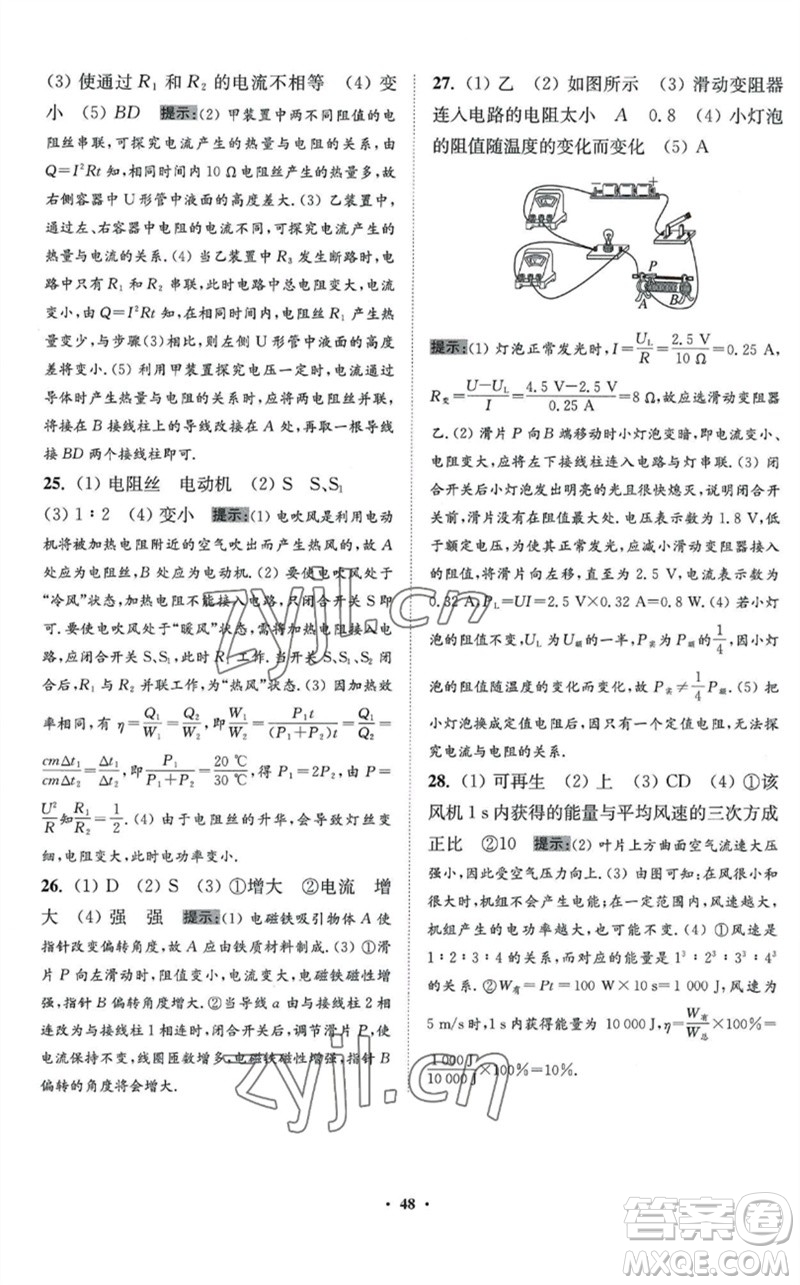 (3) 使通过 R₁ 和 R₂ 的电流不相等 (4) 变
小 (5) BD 提示:(2) 甲装置中两不同阻值的电
阻丝串联,可探究电流产生的热量与电阻的关系,由
Q=I²Rt 知,相同时间内 10 Ω 电阻丝产生的热量多,故
右侧容器中 U 形管中液面的高度差大. (3) 乙装置中,
通过左、右容器中电阻的电流不同,可探究电流产生的
热量与电流的关系. (4) 当乙装置中 R₃ 发生断路时,电
路中只有 R₁ 和 R₂ 串联,此时电路中总电阻变大,电流
变小,由 Q=I²Rt 知,在相同时间内,电阻 R₁ 产生的热
量变少,与步骤(3)中实验相比,右侧 U 形管中液面高
度差将变小. (5) 利用甲装置探究电压一定时,电流做
功时产生热量与电阻的关系时,应将两电阻丝并联,即
将接在 B 接线柱上的导线改接在 A 处,再用导线
接 BD 两个接线柱即可.
25. (1) 电阻丝 电动机 (2) S S、S₁
(3) 1∶2 (4) 变小 提示:(1) 电吹风是利用电动
机将被加热电阻附近的空气吹出而产生热风的,故 A
处应为电阻丝,B 处应为电动机. (2) 要使电吹风处于
“冷风”状态,加热电阻不能接入电路,只闭合开关 S 即可.
要使电吹风处于“暖风”状态,需将加热电阻接入电
路,应闭合开关 S、S₁,此时 R₁ 工作. 当开关 S、S₁、S₂ 闭
合后,R₁ 与 R₂ 并联工作,为“热风”状态. (3) 因加热效
率相同,故有 η=Q₁/W₁=Q₂/W₂,即 W₁/W₂=P₁t/((P₁+P₂)t)=Q₁/Q₂=
cmΔt₁/cmΔt₂=Δt₁/Δt₂,即 P₁/(P₁+P₂)=20 ℃/30 ℃,得 P₁=2P₂,由 P=
U²/R 知 R₁/R₂=1/2. (4) 由于电阻丝的升华,会导致灯丝变
细,电阻变大,故电功率变小.
26. (1) D (2) S (3) ①增大 ②电流 增
大 (4) 强 强 提示:(1) 电磁铁吸引物体 A 使
指针改变偏转角度,故 A 应由铁质材料制成. (3) ①滑
片 P 向左滑动时,阻值变小,电流变大,电磁铁磁性增
强,指针 B 偏转角度增大. ②当导线 a 由与接线柱 2 相
连改为与接线柱 1 相连时,闭合开关后,调节滑片 P,使
电流不变,线圈匝数变多,电磁铁磁性增强,指针 B
偏转的角度将会增大.
27. (1) 乙 (2) 如图所示 (3) 滑动变阻器
连入电路的电阻太小 A 0.8 (4) 小灯泡
的阻值随温度的变化而变化 (5) A
− +
P
A B
提示:(1) 灯泡正常发光时,I=U_L/R=2.5 V/10 Ω=0.25 A,
R变=(U−U_L)/I=(4.5 V−2.5 V)/0.25 A=8 Ω,故应选滑动变阻器
乙. (2) 滑片 P 向 B 端移动时小灯泡变暗,即电流变小,
电阻变大,故应选左下接线柱接入电路与灯串联. (3) 闭
合开关后小灯泡发出明亮的光但很快熄灭,说明闭合
开关前,滑片没有在阻值最大处. 电压表示数为 1.8 V,
低于额定电压,为使灯泡正常发光,应减小滑动变阻器接入
的阻值,将滑片向 A 端移动,直至 2.5 V,此时电流为
0.32 A,P_L=UI=2.5 V×0.32 A=0.8 W. (4) 若小灯
泡的阻值不变,U_L 为 U额 的一半,P实 为 P额 的 1/4,因小灯
泡的阻值随温度的变化而变化,故 P实≠1/4 P额. (5) 把
小灯泡换成定值电阻后,因只有一个定值电阻,故无法
探究电流与电阻的关系.
28. (1) 可再生 (2) 上 (3) CD (4) ①该
风机 1 s 内获得的能量与平均风速的三次方成
正比 ②10 提示:(2) 叶片上方曲面空气流速大压
强小,因此受空气压力向上. (3) 由图可知:在风很小和
很大时,机组产生的电功率较小,并不是风力越大,风力
机组产生的电功率越大,也不可能无限大. (4) ① 风速是
1∶2∶3∶4 的关系,而能量是 1³∶2³∶3³∶4³ 的
关系. ② W有=Pt=100 W×10 s=1 000 J,风速为
5 m/s时,风机获得的能量为 10 000 J,η=W有/W总×100%=
1 000 J/10 000 J×100%=10%.
zyjl.cn
zyjl.cn
• 48 •
答案圈
MXQE.COM